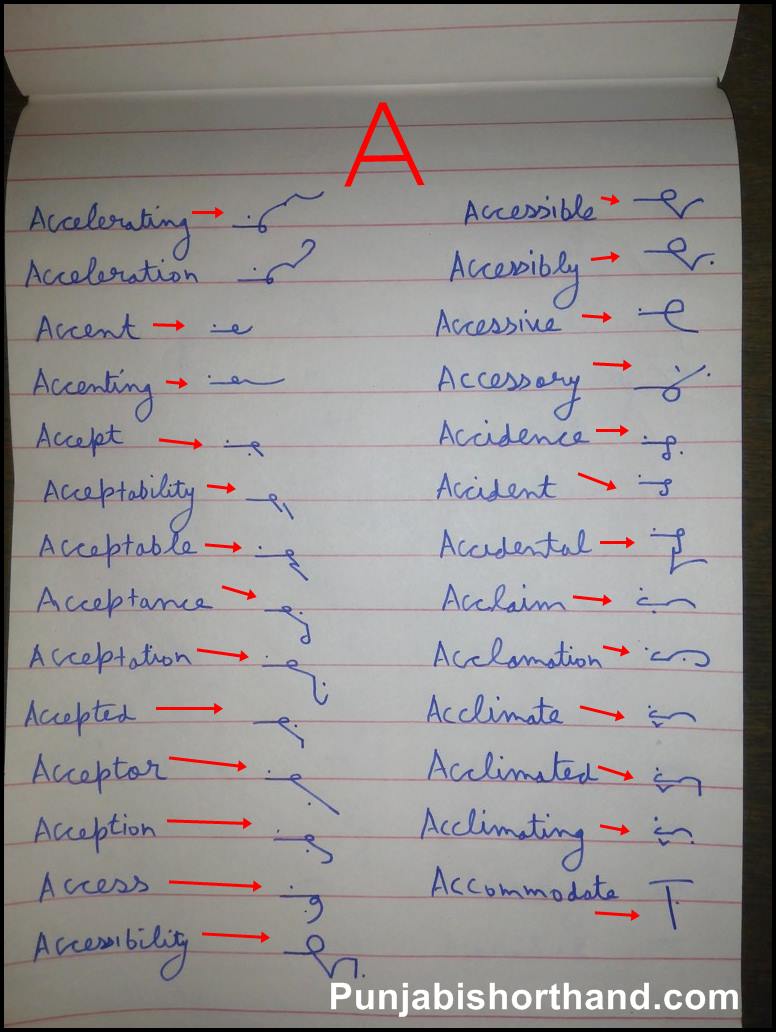 A
Accelerating
Acceleration
Accent
Accenting
Accept
Acceptability
Acceptable
Acceptance
Acceptation
Accepted
Acceptor
Acception
Access
Accessibility
Accessible
Accessibly
Accessive
Accessory
Accidence
Accident
Accidental
Acclaim
Acclamation
Acclimate
Acclimated
Acclimating
Accommodate
Punjabishorthand.com